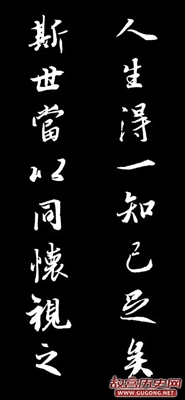 人生得一知己足矣
斯世當以同懷視之
故宫历史网
www.GUGONG.NET